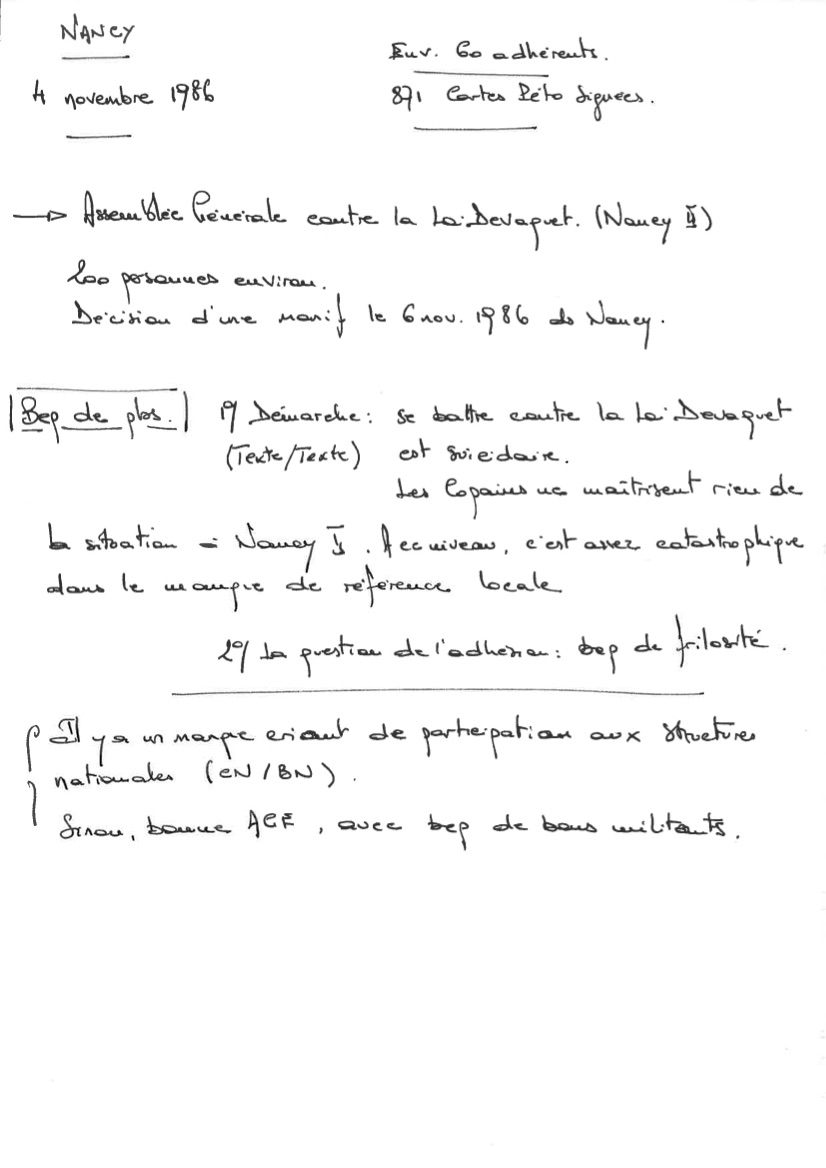 NANCY
Env. 60 adhérents.
4 novembre 1986
871 Cartes Péto Signées.
→ Assemblée Générale contre la Loi Devaquet. (Nancy II)
200 personnes environ.
Décision d'une manif le 6 nov. 1986 ds Nancy.
Bcp de pbs. 1°/ Démarche : se battre contre la Loi Devaquet
(Texte/Texte) est suicidaire.
Les Copains ne maîtrisent rien de
la situation à Nancy II. A ce niveau, c'est assez catastrophique
dans le manque de référence locale
2°/ La question de l'adhésion : bcp de frilosité.
Il y a un manque criant de participation aux structures
nationales (CN / BN).
Sinon, bonne AGE, avec bcp de bons militants.